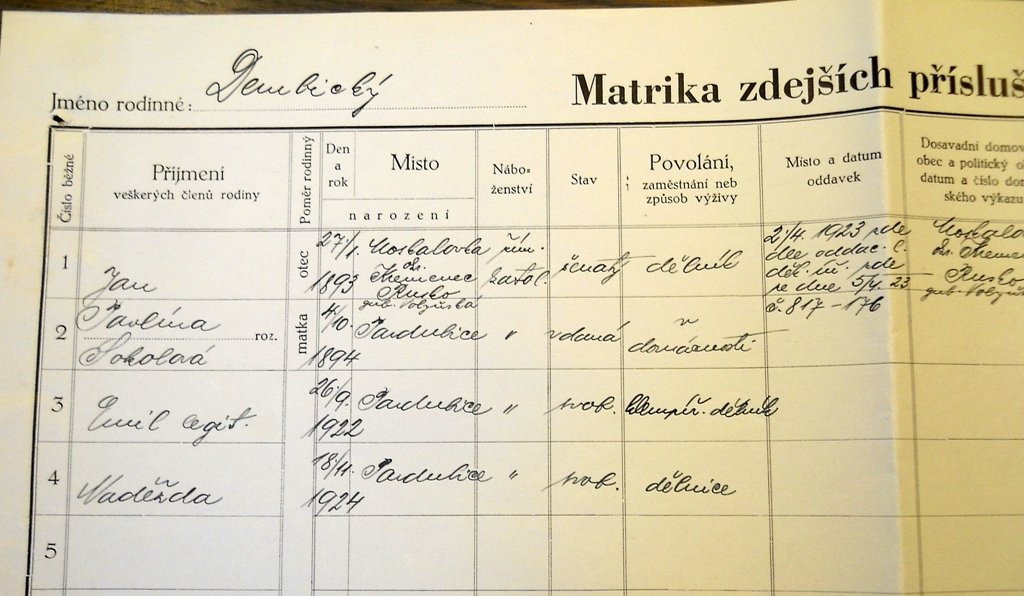 Jméno rodinné: Dembický
Matrika zdejších přísluš
Číslo běžné
Příjmení
veškerých členů rodiny
Poměr rodinný
Den
a
rok
Místo
narození
Nábo-
ženství
Stav
Povolání,
zaměstnání neb
způsob výživy
Místo a datum
oddavek
Dosavadní domov
obec a politický o
datum a číslo do
ského výkazu
1
Jan
otec
27/1.
1893
Moskalovka
Kremenec
Rusko
gub. Volyňská
řím.
katol.
ženatý
dělník
2/4. 1923 zde
dle oddac. l.
děk. úř. zde
ze dne 5/4. 23
č. 817-176
Moskalov
Kremen
Rusko
gub. Volyňs
2
Pavlína
roz.
Sokolová
matka
4/10
1894
Pardubice
"
vdaná
v
domácnosti
3
Emil legit.
26/9.
1922
Pardubice
"
svob.
klempíř. dělník
4
Naděžda
18/11.
1924
Pardubice
"
svob.
dělnice
5